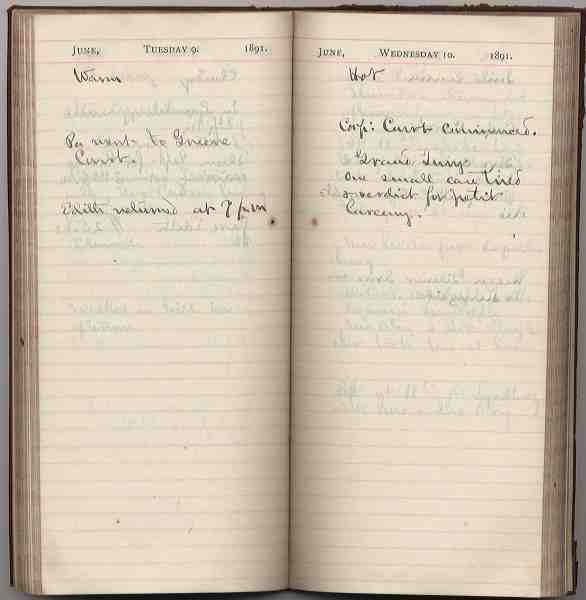 JUNE, TUESDAY 9. 1891.
Warm
Pa went to Greene
Court.
Edith returned at 7 p.m
JUNE, WEDNESDAY 10. 1891.
Hot
Corp: Court commenced.
Grand Jury
one small case tried
& verdict for petit
larceny.